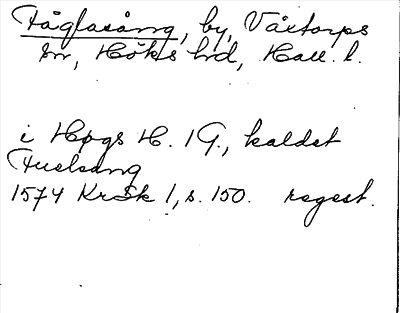 Fåglasång, by, Våxtorps
sn, Höks hd, Hall. l.
i Høgs H. 1 G., kaldet
Fuelsang
1574 KrSk 1, s. 150. regest.